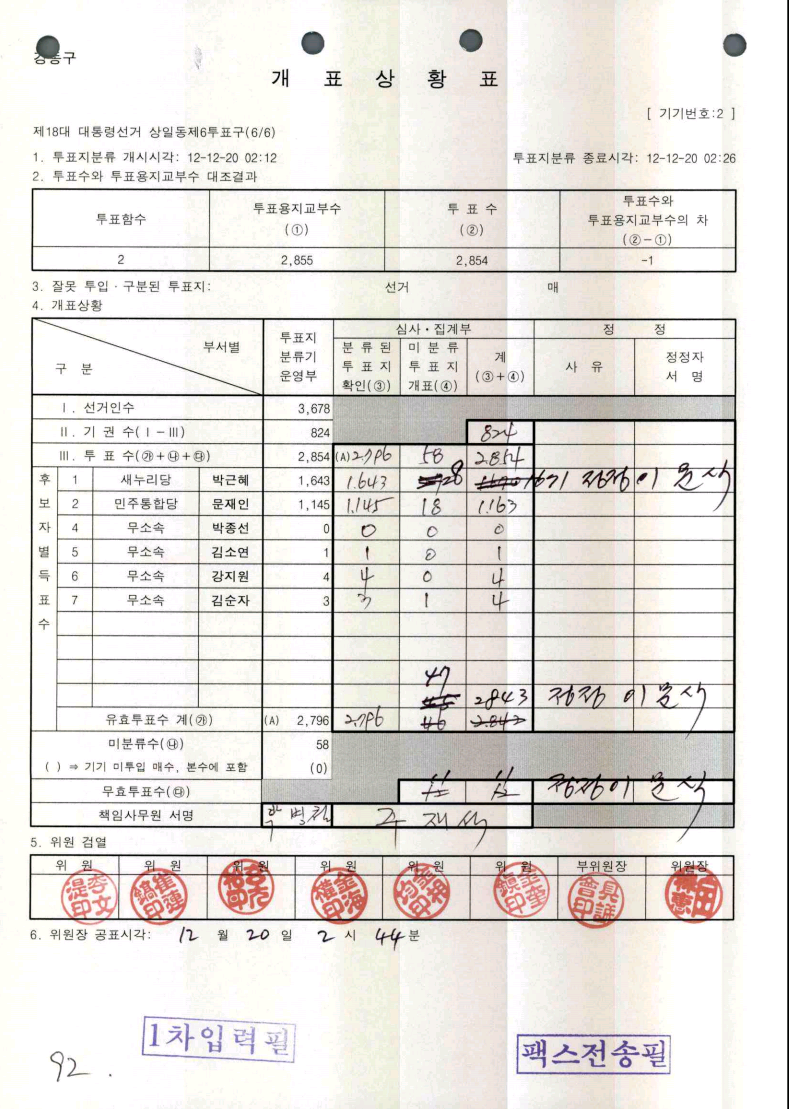 강동구
개 표 상 황 표
[ 기기번호:2 ]
제18대 대통령선거 상일동제6투표구(6/6)
1. 투표지분류 개시시각: 12-12-20 02:12 투표지분류 종료시각: 12-12-20 02:26
2. 투표수와 투표용지교부수 대조결과
투표함수 투표용지교부수 (①) 투 표 수 (②) 투표수와 투표용지교부수의 차 (②-①)
2 2,855 2,854 -1
3. 잘못 투입·구분된 투표지: 선거 매
4. 개표상황
구 분 부서별 투표지 분류기 운영부 심사·집계부 정 정
분 류 된 투 표 지 확인(③) 미 분 류 투 표 지 개표(④) 계 (③+④) 사 유 정정자 서 명
Ⅰ. 선거인수 3,678
Ⅱ. 기 권 수(Ⅰ-Ⅲ) 824 824
Ⅲ. 투 표 수(㉮+㉯+㉰) 2,854 (A) 2.796 58 2.854
후보자별득표수
1 새누리당 박근혜 1,643 1.643 28 1671 정정 이문식
2 민주통합당 문재인 1,145 1.145 18 1.163
4 무소속 박종선 0 0 0 0
5 무소속 김소연 1 1 0 1
6 무소속 강지원 4 4 0 4
7 무소속 김순자 3 3 1 4
47
2843 정정 이문식
유효투표수 계(㉮) (A) 2,796 2.796 46 2.842
미분류수(㉯) 58
( ) ⇒ 기기 미투입 매수, 본수에 포함 (0)
무효투표수(㉰) 정정 이문식
책임사무원 서명
5. 위원 검열
위 원 위 원 위 원 위 원 위 원 위 원 부위원장 위원장
6. 위원장 공표시각: 12 월 20 일 2 시 44 분
1차입력필
팩스전송필
92 .